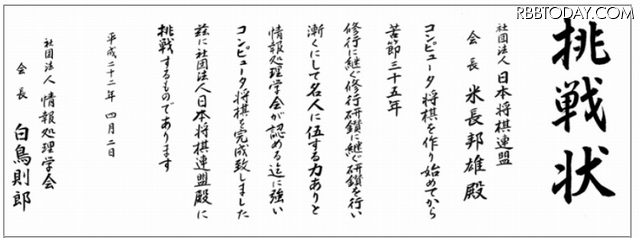 RBBTODAY.COM
挑戦状
社団法人 日本将棋連盟
会長 米長邦雄 殿
コンピュータ将棋を作り始めてから
苦節三十五年
修行に継ぐ修行研鑽に継ぐ研鑽を行い
漸くにして名人に伍する力ありと
情報処理学会が認める迄に強い
コンピュータ将棋を完成致しました
茲に社団法人日本将棋連盟殿に
挑戦するものであります
平成二十二年 四月二日
社団法人 情報処理学会
会長 白鳥則郎